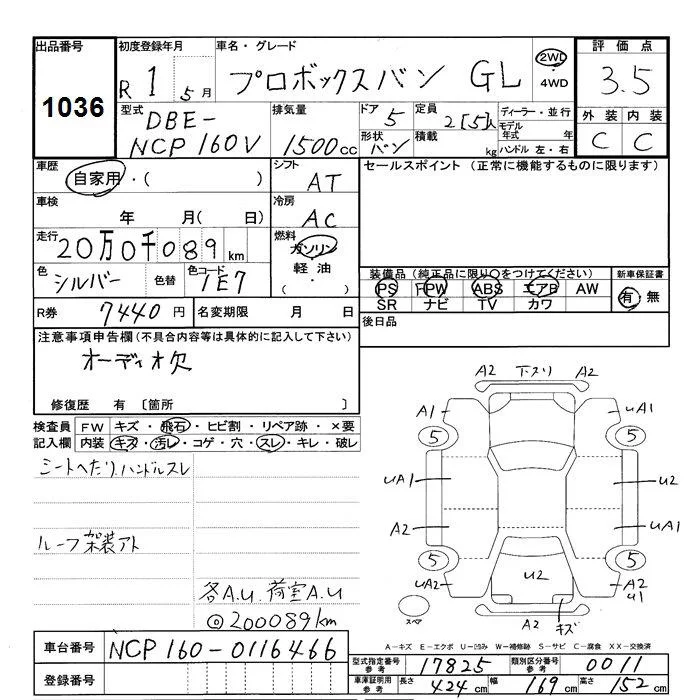 出品番号 初度登録年月 車名・グレード 評価点
1036 R 1年 5月 プロボックスバン GL 2WD・4WD 3.5
型式 排気量 ドア 定員 ディーラー・並行 外装 内装
DBE-NCP160V 1500cc 5 2[5]人 モデル年式 年 C C
形状 バン 積載 kg ハンドル 左・右
車歴 自家用・( ) シフト AT セールスポイント (正常に機能するものに限ります)
車検 年 月( 日) 冷房 AC
走行 20万0千089km 燃料 ガソリン・軽油・( )
色 シルバー 色替 色コード 1E7
装備品 (純正品に限り○をつけてください) 新車保証書
PS PW ABS エアB AW 有 無
SR ナビ TV カワ
R券 7440円 名変期限 月 日 後日品
注意事項申告欄 (不具合内容等は具体的に記入して下さい)
オーディオ欠
修復歴 有 〔箇所 〕
検査員記入欄 FW キズ・飛石・ヒビ割・リペア跡・×要
内装 キズ・汚レ・コゲ・穴・スレ・キレ・破レ
シートへたり.ハンドルスレ
ルーフ架装アト
各A.U.荷室A.U
◎200089km
A2 下スリ A2
A1 UA1
5 5
UA1 U2
A2 UA1
5 5
UA2 U2 A2 U1
スペア A2 キズ
A-キズ E-エクボ U-凹み W-補修跡 S-サビ C-腐食 XX-交換済
車台番号 NCP160-0116466
登録番号
型式指定番号参考 17825 類別区分番号参考 0011
車庫証明用参考 長さ 424cm 幅 169cm 高さ 152cm